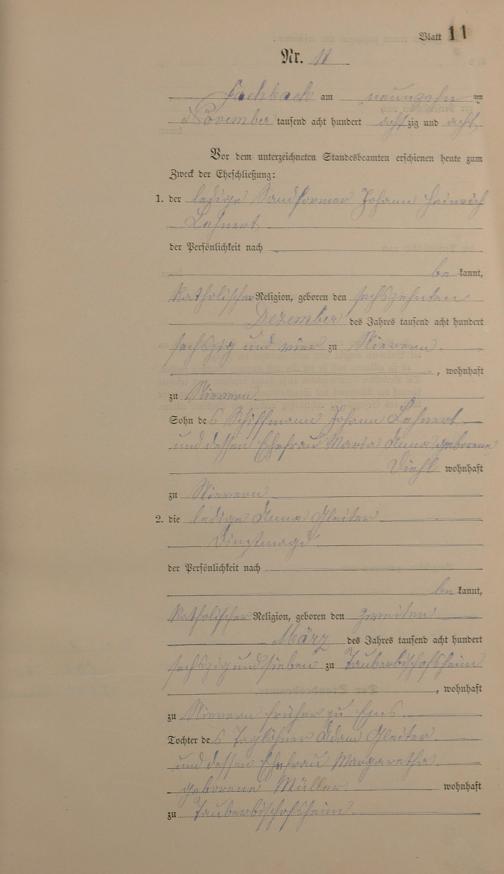 Blatt 11
Nr. 11
Fachbach am neunzehn ten
November tausend acht hundert achtzig und acht.
Vor dem unterzeichneten Standesbeamten erschienen heute zum
Zweck der Eheschließung:
1. der ledige Sandformer Johann Heinrich
Lehnert
der Persönlichkeit nach
be kannt,
katholischer Religion, geboren den sechszehnten
Dezember des Jahres tausend acht hundert
sechszig und vier zu Nievern
, wohnhaft
zu Nievern
Sohn des Schiffmann Johann Lehnert
und dessen Ehefrau Maria Anna geborene
Diehl wohnhaft
zu Nievern
2. die ledige Anna Gleiter
Dienstmagd
der Persönlichkeit nach
be kannt,
katholischer Religion, geboren den zweiten
März des Jahres tausend acht hundert
sechszig und sieben zu Tauberbischofsheim
, wohnhaft
zu Nievern früher zu Ems
Tochter des Taglöhner Adam Gleiter
und dessen Ehefrau Margaretha
geborene Müller wohnhaft
zu Tauberbischofsheim